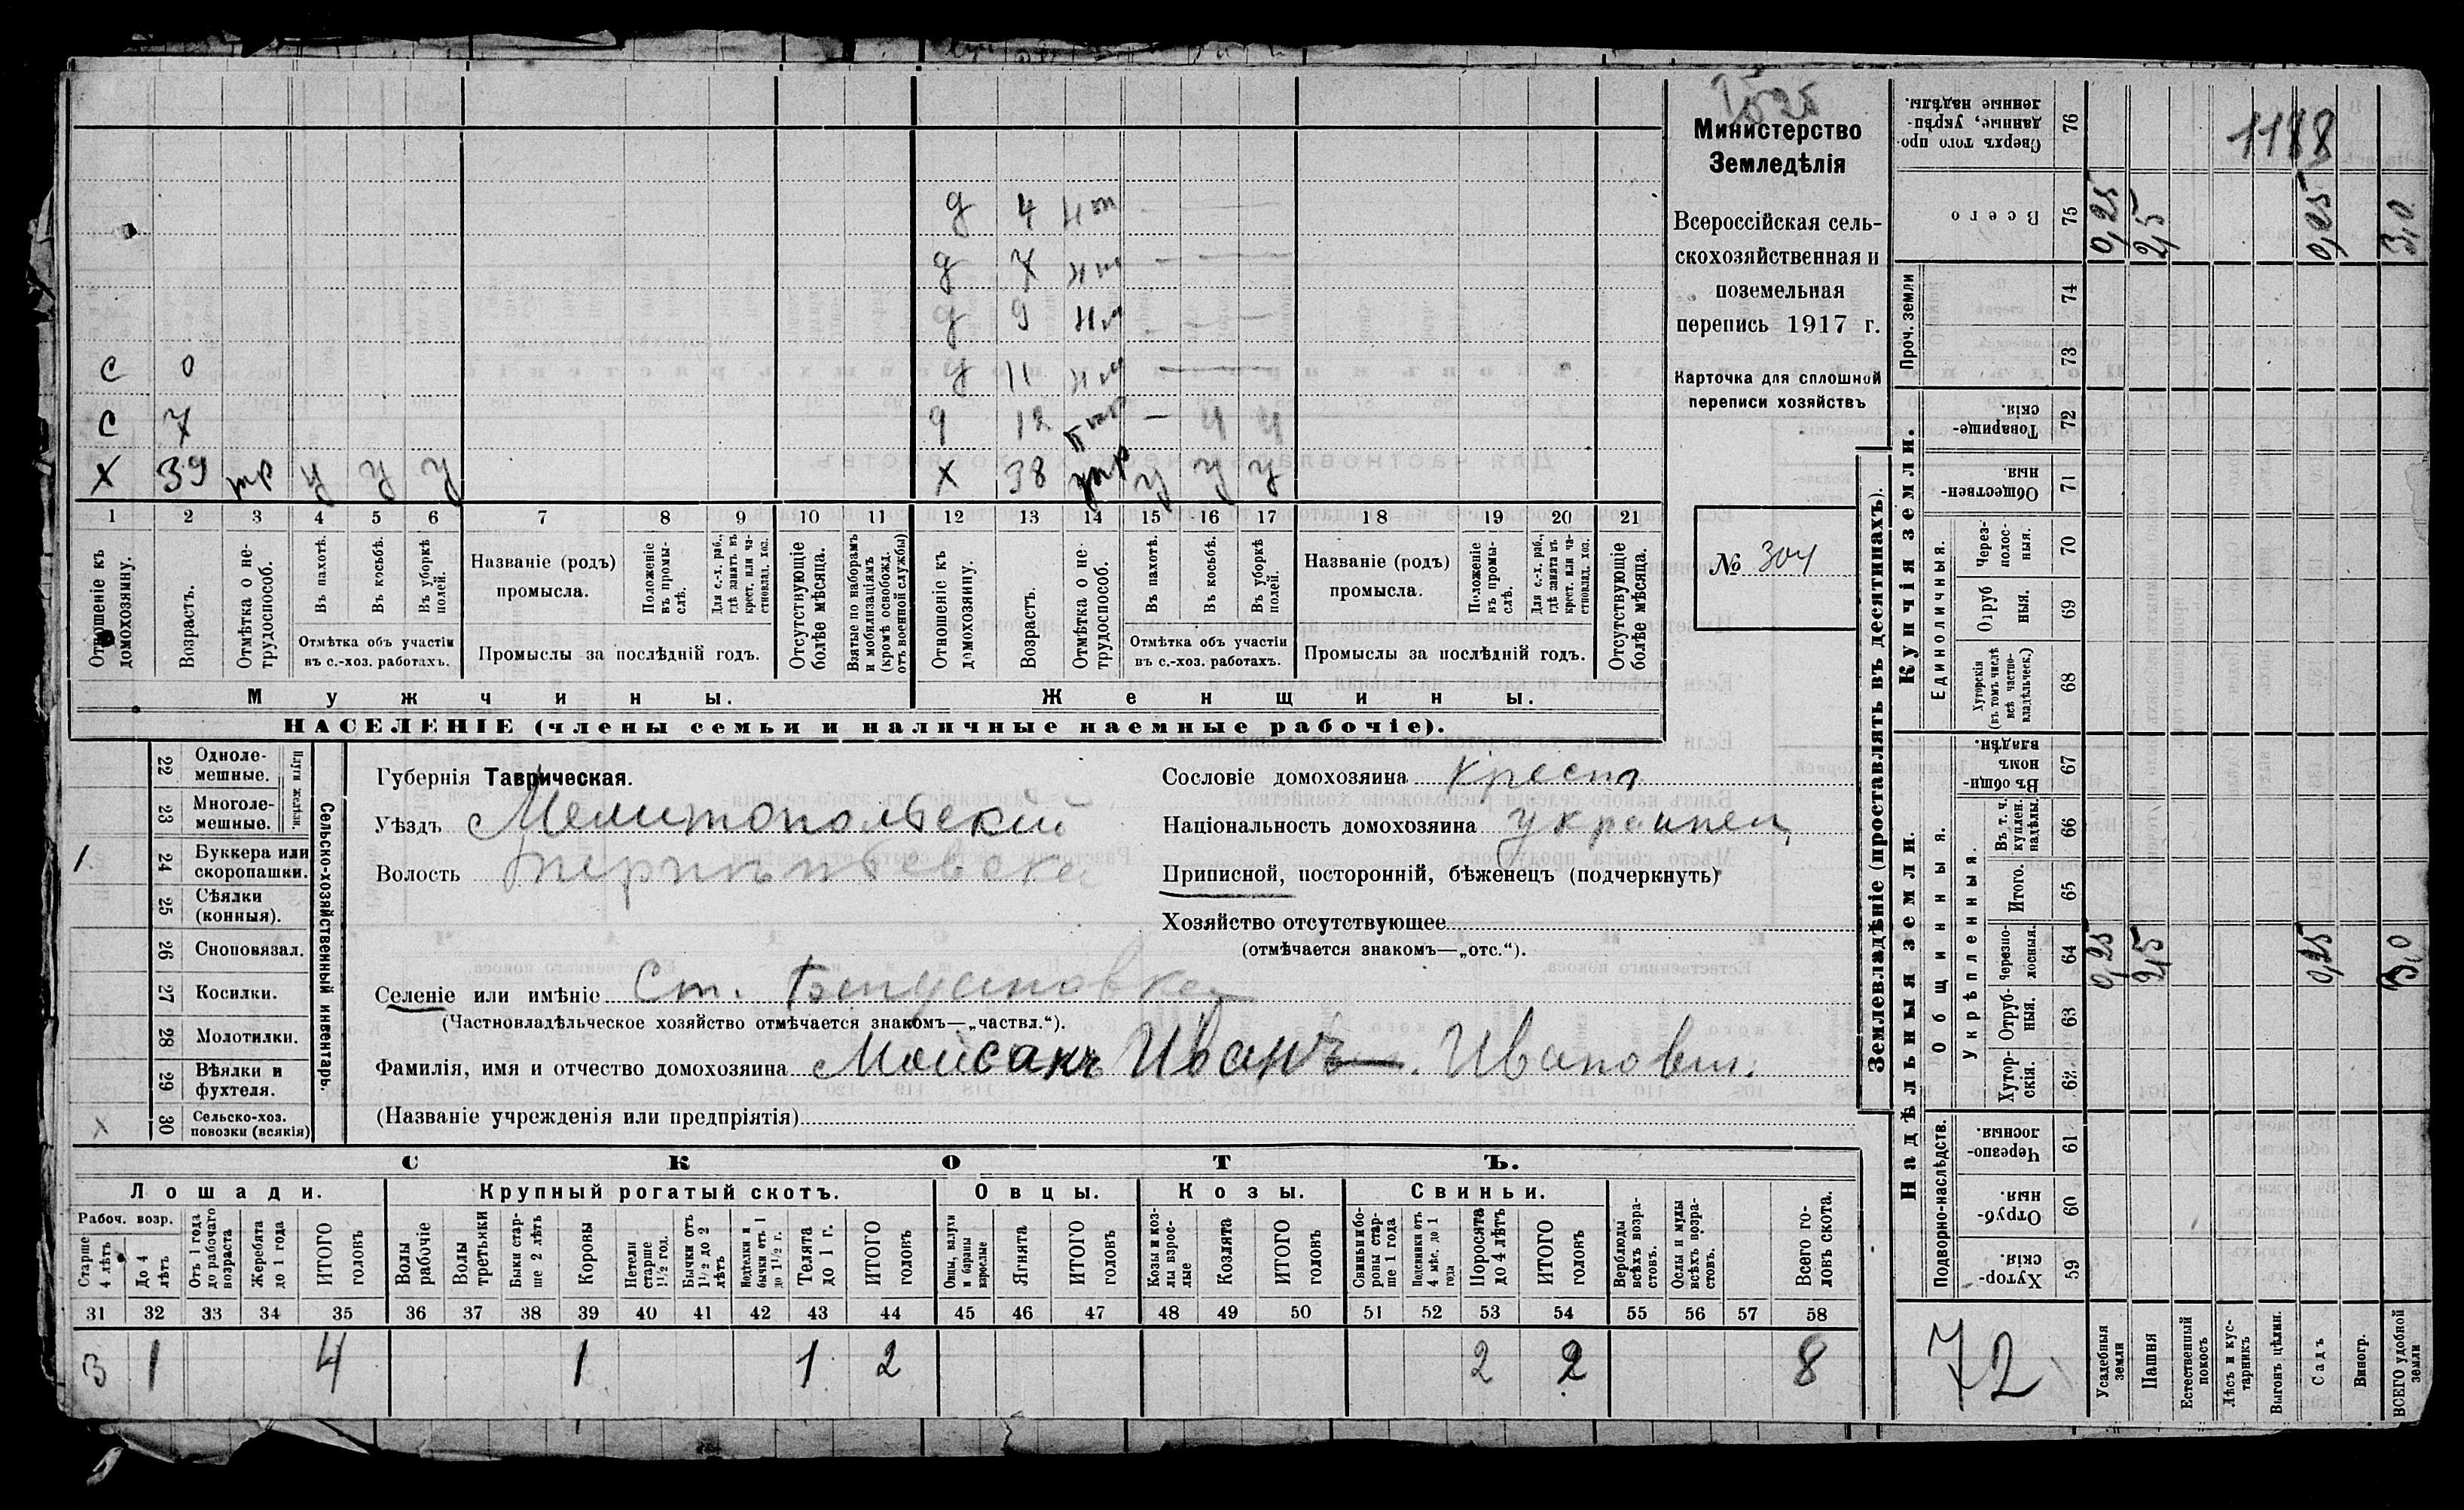 Министерство
Земледѣлія
Всероссійская сель-
скохозяйственная и
поземельная
перепись 1917 г.
Карточка для сплошной
переписи хозяйствъ
№ 304
1188
д 4 нт —
д 7 нт — —
д 9 нт — —
с 0 д 11 нт —
с 7 д 12 — у у
х 39 тр у у у х 38 тр у у у
1 2 3 4 5 6 7 8 9 10 11 12 13 14 15 16 17 18 19 20 21
Отношеніе къ домохозяину.
Возрастъ.
Отмѣтка о не-трудоспособ.
Въ пахотѣ.
Въ косьбѣ.
Въ уборкѣ полей.
Отмѣтка объ участіи
въ с.-хоз. работахъ.
Названіе (родъ)
промысла.
Положеніе въ промы-слѣ.
Для с.-х. раб., гдѣ занятъ въ крест. или ча-стновлад. хоз.
Промыслы за послѣдній годъ.
Отсутствующіе болѣе мѣсяца.
Взятые по наборамъ и мобилизаціямъ (кромѣ освобожд. отъ военной службы)
Отношеніе къ домохозяину.
Возрастъ.
Отмѣтка о не-трудоспособ.
Въ пахотѣ.
Въ косьбѣ.
Въ уборкѣ полей.
Отмѣтка объ участіи
въ с.-хоз. работахъ.
Названіе (родъ)
промысла.
Положеніе въ промы-слѣ.
Для с.-х. раб., гдѣ занята въ крест. или ча-стновлад. хоз.
Промыслы за послѣдній годъ.
Отсутствующіе болѣе мѣсяца.
Мужчины. Женщины.
НАСЕЛЕНІЕ (члены семьи и наличные наемные рабочіе).
Сельско-хозяйственный инвентарь.
Плуги желѣзн.
22 Одноле-мешные.
23 Многоле-мешные.
1. 24 Буккера или скоропашки.
25 Сѣялки (конныя).
26 Сноповязал.
27 Косилки.
28 Молотилки.
29 Вѣялки и фухтеля.
х 30 Сельско-хоз. повозки (всякія)
Губернія Таврическая.
Уѣздъ Мелитопольскій
Волость
Селеніе или имѣніе Ст. Богдановка
(Частновладѣльческое хозяйство отмѣчается знакомъ—„частвл.“).
Фамилія, имя и отчество домохозяина Мойсакъ Иванъ Иванович.
(Названіе учрежденія или предпріятія)
Сословіе домохозяина Крест
Національность домохозяина украинец
Приписной, посторонній, бѣженецъ (подчеркнуть)
Хозяйство отсутствующее
(отмѣчается знакомъ—„отс.“).
СКОТЪ.
Лошади. Крупный рогатый скотъ. Овцы. Козы. Свиньи.
Рабоч. возр.
Старше 4 лѣтъ
До 4 лѣтъ
Отъ 1 года до рабочаго возраста
Жеребята до 1 года
ИТОГО головъ
Волы рабочіе
Волы третьяки
Быки стар-ше 2 лѣтъ
Коровы
Нетели старше 1½ год.
Бычки отъ 1½ до 2 лѣтъ
Подтелки и бычки отъ 1 до 1½ г.
Телята до 1 г.
ИТОГО головъ
Овцы, валухи и бараны взрослые
Ягнята
ИТОГО головъ
Козы и коз-лы взрос-лые
Козлята
ИТОГО головъ
Свиньи и бо-ровы стар-ше 1 года
Подсвинки отъ 4 мѣс. до 1 года
Поросята до 4 лѣтъ
ИТОГО головъ
Верблюды всѣхъ возра-стовъ.
Ослы и мулы всѣхъ возра-стовъ.
Всего го-ловъ скота.
31 32 33 34 35 36 37 38 39 40 41 42 43 44 45 46 47 48 49 50 51 52 53 54 55 56 57 58
3 1 4 1 1 2 2 2 8
Землевладѣніе (проставлять въ десятинахъ).
Купчія земли.
Надѣльныя земли.
Сверхъ того про-данные, укрѣп-ленные надѣлы. 76
Всего 75 0,25 2,5 0,25 3,0
Проч. земли 74 73
Товарище-скія. 72
Обществен-ныя. 71
Единоличныя.
Через-полос-ныя. 70
Отруб ныя. 69
Хуторскія (въ томъ числѣ всѣ частно-владѣльческ.) 68
Общинныя.
Въ общи номъ владѣн. 67
Укрѣпленныя.
Въ т. ч. куплен. надѣлы. 66
Итого. 65
Черезпо-лосныя. 64 0,25 2,5 0,25 3,0
Отруб-ныя. 63
Хутор-скія. 62
Подворно-наслѣдств.
Черезпо-лосныя. 61
Отруб-ныя. 60
Хутор-скія. 59
72
Усадебныя земли
Пашня
Естественный покосъ
Лѣсъ и кус-тарникъ
Выгонъ цѣлин.
Садъ
Виногр.
ВСЕГО удобной земли